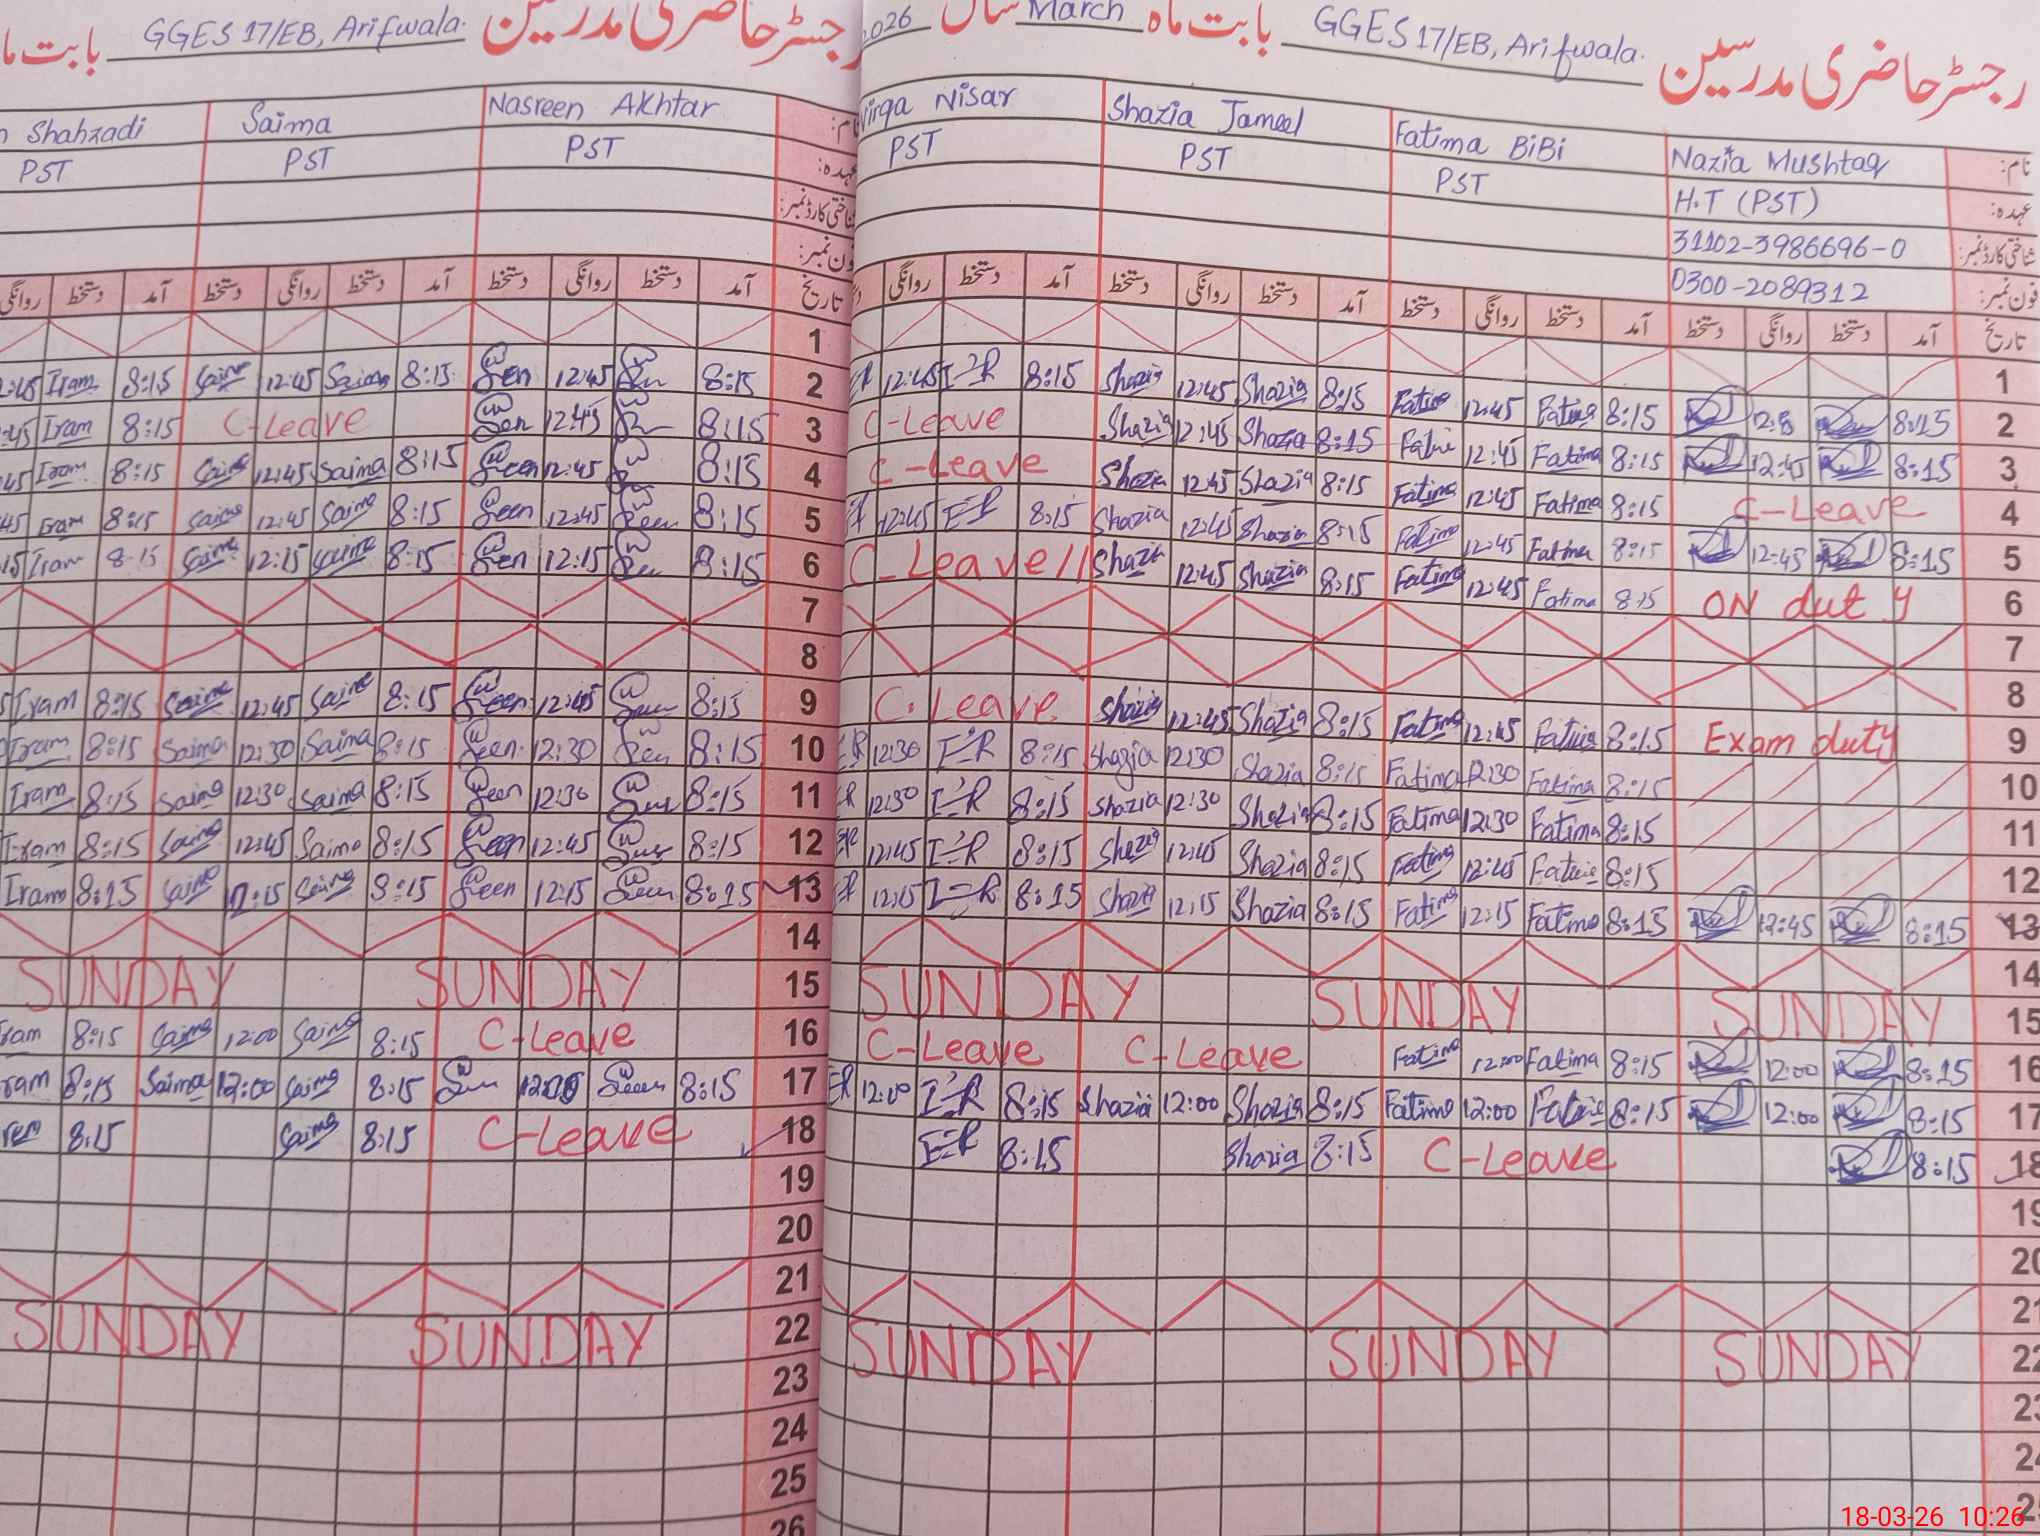 GGES 17/EB, Arifwala. رجسٹر حاضری مدرسین بابت ماہ
2026 سال March بابت ماہ GGES 17/EB, Arifwala. رجسٹر حاضری مدرسین
Shahzadi Saima Nasreen Akhtar نام:
PST PST PST عہدہ:
شناختی کارڈ نمبر:
فون نمبر:
روانگی دستخط آمد دستخط روانگی دستخط آمد دستخط روانگی دستخط آمد تاریخ
1
Iram 8:15 Saima 12:45 Saima 8:15 12:45 8:15 2
Iram 8:15 C-Leave 12:45 8:15 3
Iram 8:15 Saima 12:45 Saima 8:15 12:45 8:15 4
Iram 8:15 Saima 12:45 Saima 8:15 12:45 8:15 5
Iram 8:15 Saima 12:15 Saima 8:15 12:15 8:15 6
7
8
Iram 8:15 Saima 12:45 Saima 8:15 12:45 8:15 9
Iram 8:15 Saima 12:30 Saima 8:15 12:30 8:15 10
Iram 8:15 Saima 12:30 Saima 8:15 12:30 8:15 11
Iram 8:15 Saima 12:45 Saima 8:15 12:45 8:15 12
Iram 8:15 Saima 12:15 Saima 8:15 12:15 8:15 13
14
SUNDAY SUNDAY 15
8:15 Saima 12:00 Saima 8:15 C-Leave 16
8:15 Saima 12:00 Saima 8:15 8:15 17
8:15 Saima 8:15 C-Leave 18
19
20
21
SUNDAY SUNDAY 22
23
24
25
26
Virga Nisar Shazia Jameel Fatima BiBi Nazia Mushtaq نام:
PST PST PST H.T (PST) عہدہ:
31102-3986696-0 شناختی کارڈ نمبر:
0300-2089312 فون نمبر:
روانگی دستخط آمد دستخط روانگی دستخط آمد دستخط روانگی دستخط آمد دستخط روانگی دستخط آمد تاریخ
1
12:45 8:15 Shazia 12:45 Shazia 8:15 Fatima 12:45 Fatima 8:15 8:15 2
C-Leave Shazia 12:45 Shazia 8:15 12:45 Fatima 8:15 12:45 8:15 3
C-Leave Shazia 12:45 Shazia 8:15 Fatima 12:45 Fatima 8:15 C-Leave 4
12:45 8:15 Shazia 12:45 Shazia 8:15 Fatima 12:45 Fatima 8:15 12:45 8:15 5
C-Leave Shazia 12:45 Shazia 8:15 Fatima 12:45 Fatima 8:15 ON duty 6
7
8
C.Leave Shazia 12:45 Shazia 8:15 Fatima 12:45 Fatima 8:15 Exam duty 9
12:30 8:15 Shazia 12:30 Shazia 8:15 Fatima 12:30 Fatima 8:15 10
12:30 8:15 Shazia 12:30 Shazia 8:15 Fatima 12:30 Fatima 8:15 11
12:45 8:15 Shazia 12:45 Shazia 8:15 Fatima 12:45 Fatima 8:15 12
12:15 8:15 Shazia 12:15 Shazia 8:15 Fatima 12:15 Fatima 8:15 12:45 8:15 13
14
SUNDAY SUNDAY SUNDAY 15
C-Leave C-Leave Fatima 12:00 Fatima 8:15 12:00 8:15 16
12:00 8:15 Shazia 12:00 Shazia 8:15 Fatima 12:00 Fatima 8:15 12:00 8:15 17
8:15 Shazia 8:15 C-Leave 8:15 18
19
20
21
SUNDAY SUNDAY SUNDAY 22
18-03-26 10:26